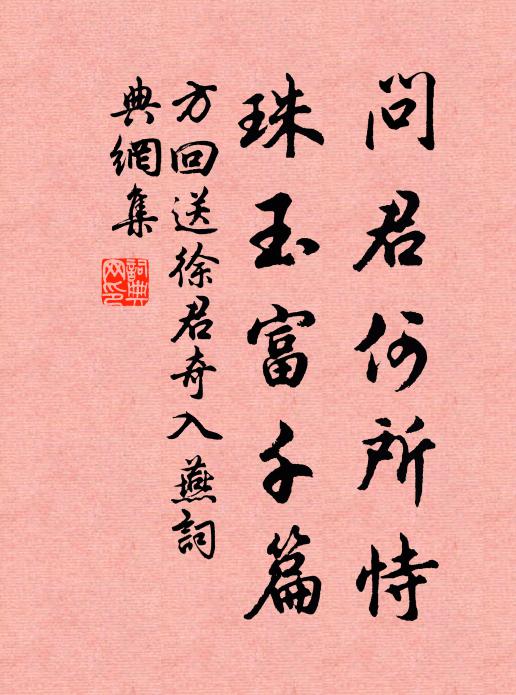 問君何所恃
珠玉富千篇
方回送徐君奇入燕詞
典網集
詞典網印